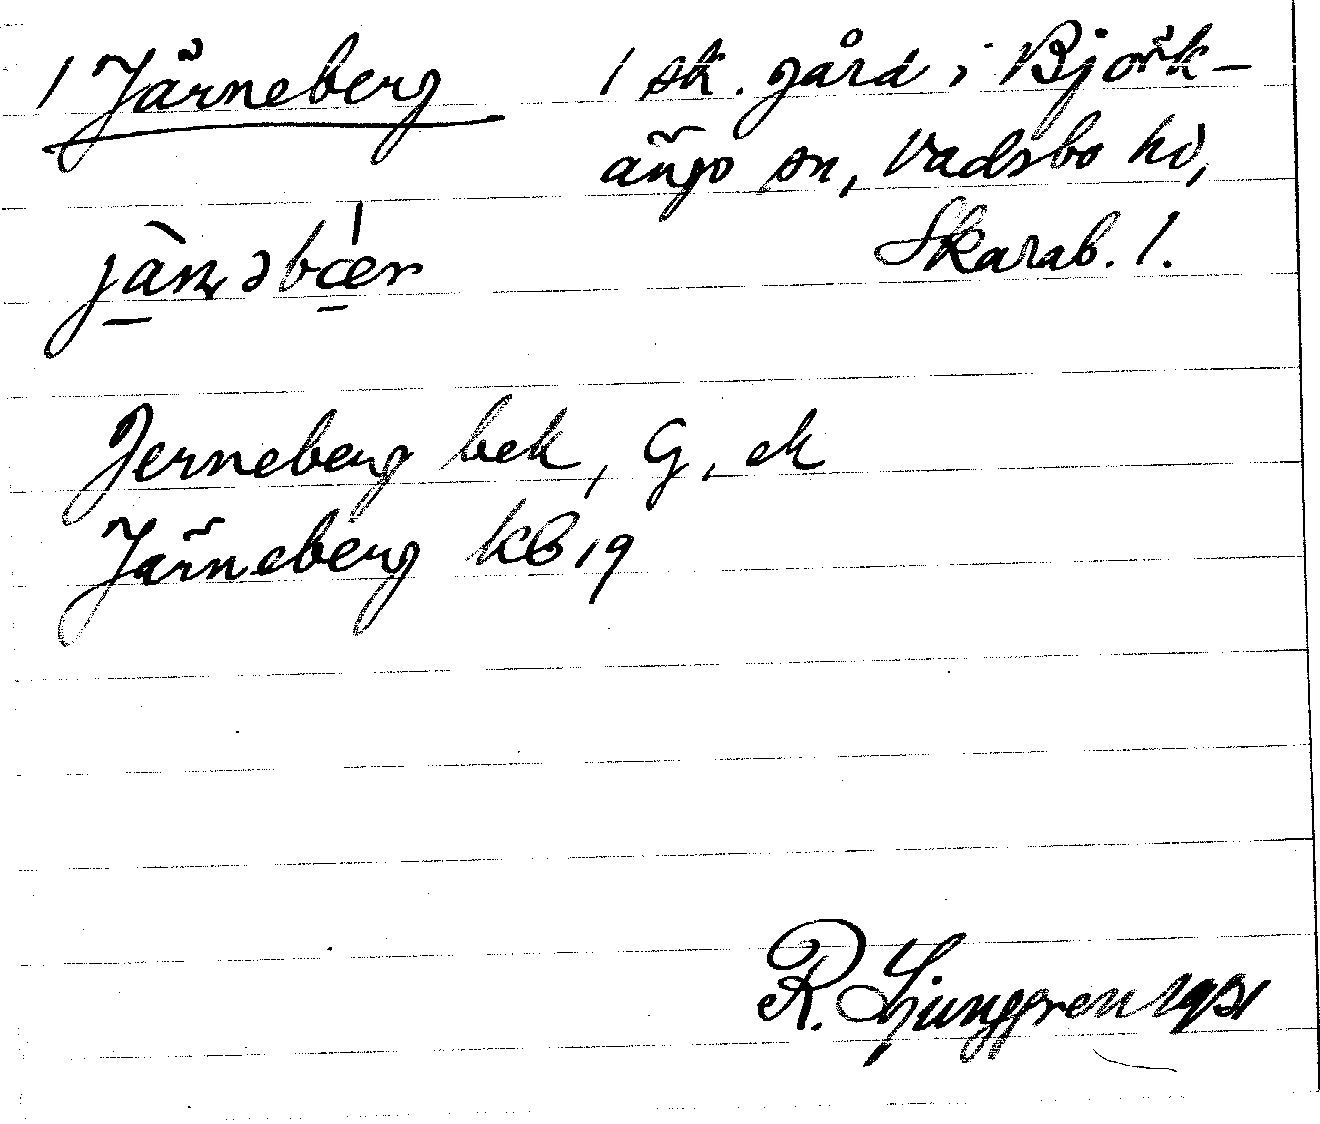 1 Järneberg
1 sk. gård i Björk-
ängs sn, Vadsbo hd,
Skarab. l.
jànəbér
Jerneberg bek, G. ek
Järneberg KB 19
R. Ljunggren 1931